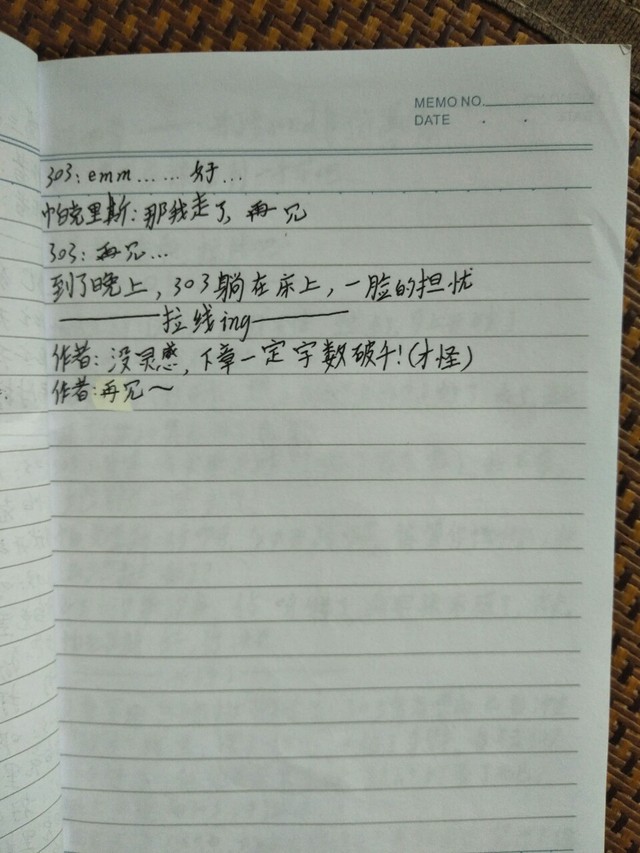 MEMO NO.
DATE . .
303：emm……好…
帕克里斯：那我走了，再见
303：再见…
到了晚上，303躺在床上，一脸的担忧
————拉线ing————
作者：没灵感，下章一定字数破千！(才怪)
作者：再见～